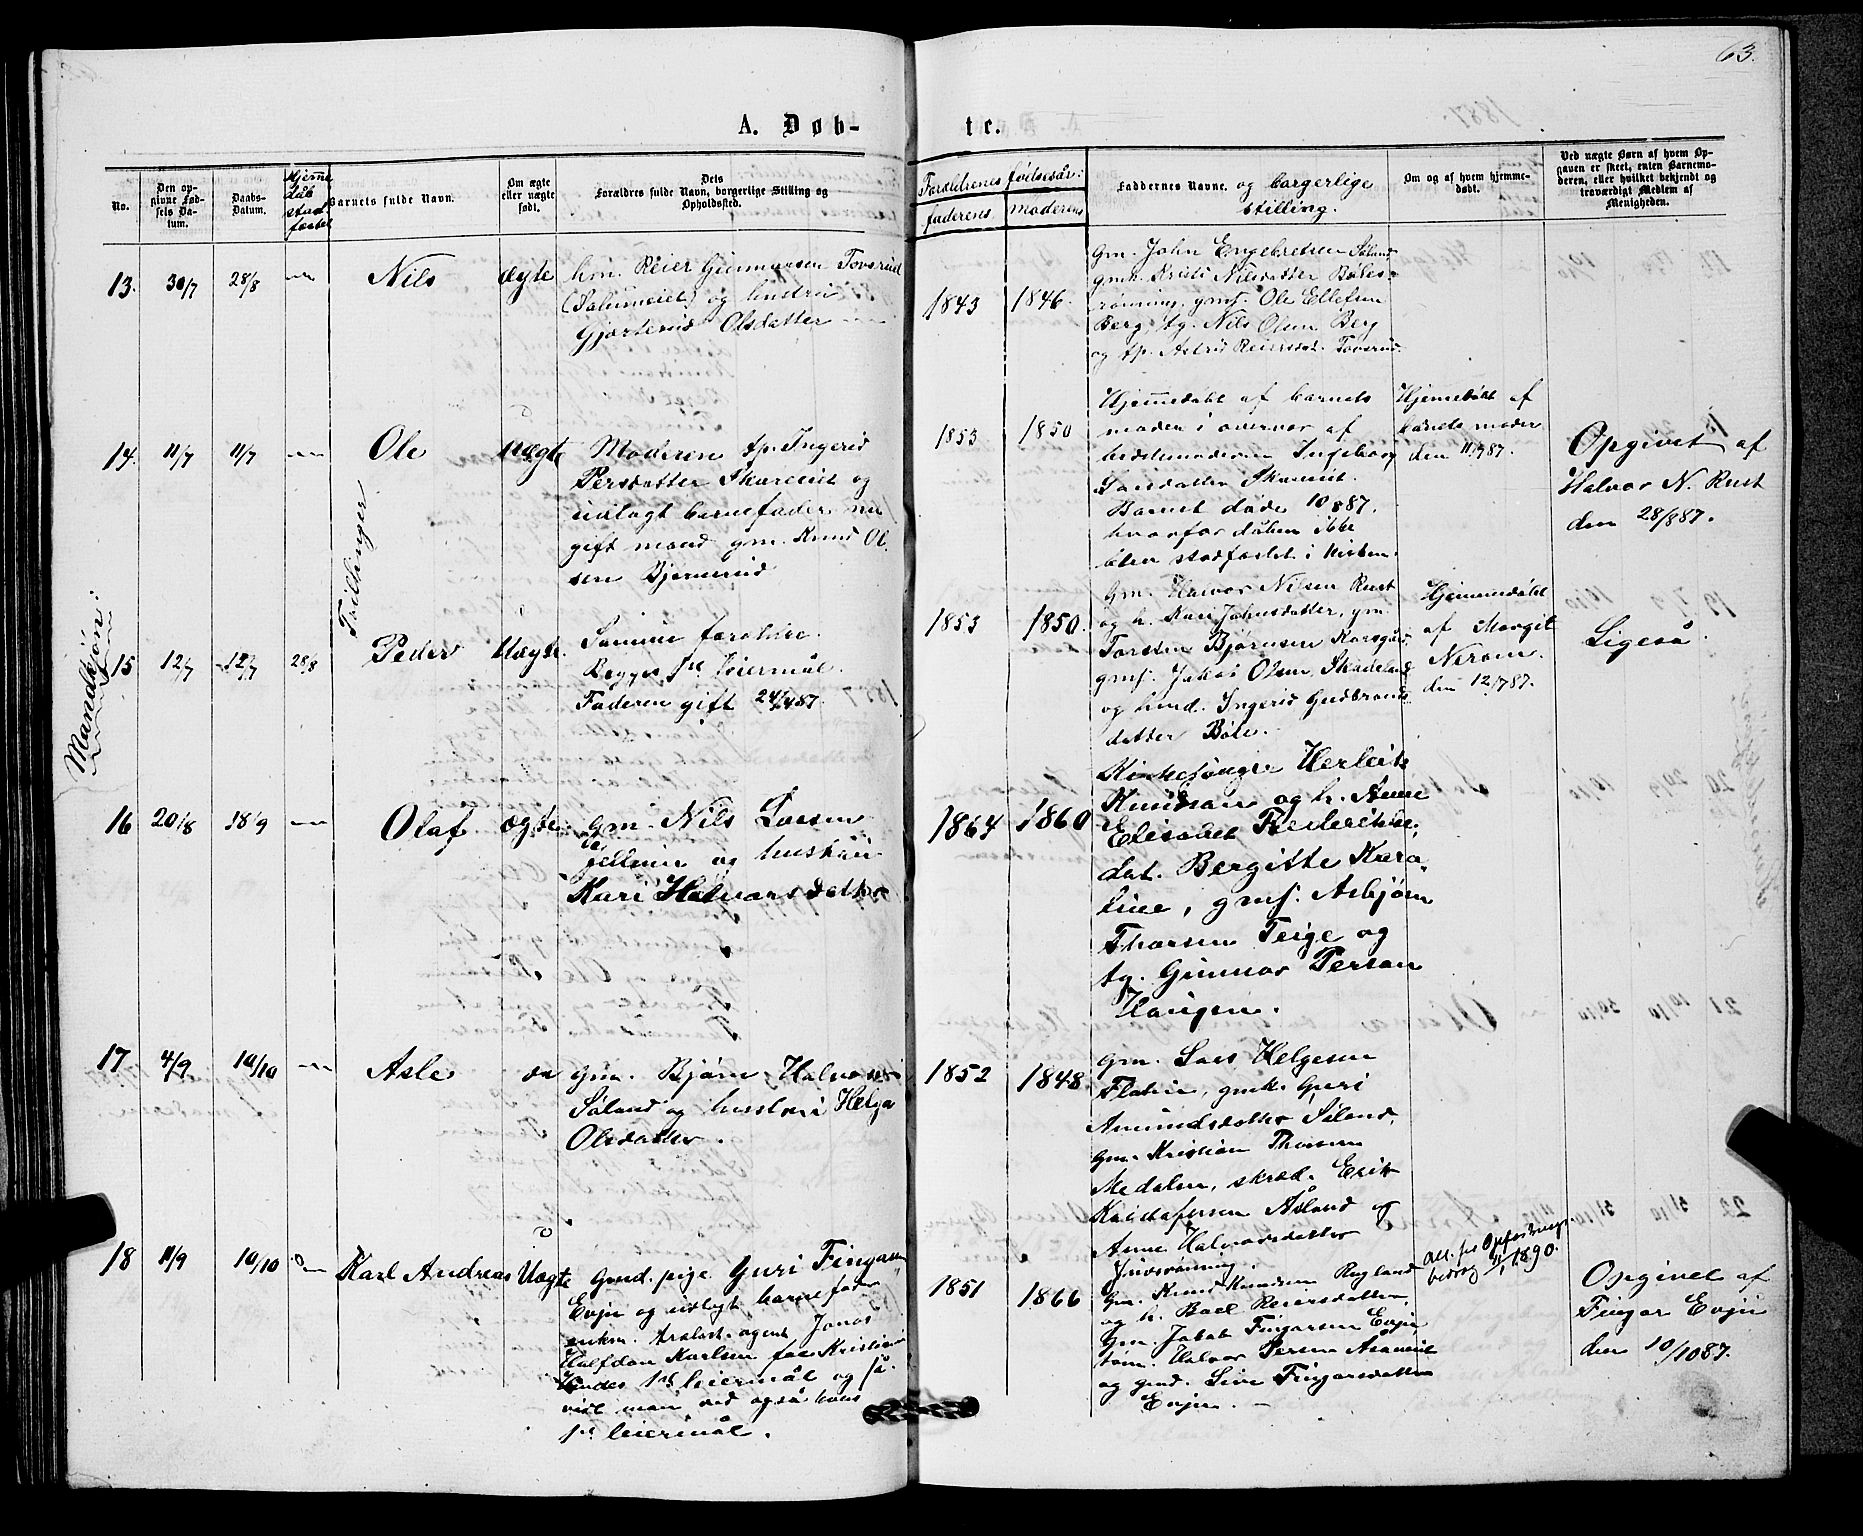 63.
A. Døb-
te.
No.
Den op-
givne Fød-
sels Da-
tum.
Daabs-
Datum.
Hjemme
dåb
stad
fæstet
Barnets fulde Navn.
Om ægte
eller uægte
født.
Dets
Forældres fulde Navn, borgerlige Stilling og
Opholdssted.
Forældrenes fødselsår:
faderens
moderens
Faddernes Navne. og borgerlige
stilling.
Om og af hvem hjemme-
døbt.
Ved uægte Børn af hvem Op-
gaven er skeet, enten Barnemo-
deren, eller hvilket bekjendt og
troværdigt Medlem af
Menigheden.
Mandkjøn:
13.
30/7
28/8
Nils
ægte
hm. Reier Gunnarsen Tovsrud
og hustru
Olsdatter
1843
1846.
gm. John Engebretsen
Nilsdatter
gmf. Ole Ellefsen
Berg, tg. Nils Olsen Berg
og tp. Astrid Reiersdat. Tovsrud.
14.
11/7
11/7
Ole
Uægte
Moderen tp. Ingerid
Persdatter og
udlagt barnefader nu
gift mand gm. Knud Ol-
sen Bjørnerud
1853
1850
Hjemmedøbt af barnets
moder i overvær af
bedstemoderen Ingeborg
Barnet døde 10/8 87.
hvorfor dåben ikke
blev stadfæstet i kirken.
Hjemmedøbt af
barnets moder
den 11/7 87.
Opgivet af
Halvor N. Rust
den 28/8 87.
Tvillinger
15
12/7
12/7
28/8
Peder
Uægte
Samme forældre.
Begges 1ste leiermål.
Faderen gift 24/4 87.
1853
1850.
Gm. Halvor Nilsen Rust
og h. Kari Johnsdatter, gm.
Torsten Bjørnsen
gmf. Jakob Olsen
og Ingerid Gudbrands
datter
Hjemmedøbt
af Margit
den 12/7 87.
Ligeså
16
20/8
18/9
Olaf
ægte
gm. Nils Larsen
og hustru
Kari Halvorsdatter
1864
1860
Kirkesanger Herleik
Knudsen og h. Anne
Elisabet Frederikke
dat. Bergitte Karo-
line, gmf. Asbjørn
Thorsen Teige og
tg. Gunnar Person
Haugen.
17
4/9
10/10
Asle
do
gm. Bjørn Halvorsen
Søland og hustru Helga
Olsdatter.
1852
1848
Gm. Lars Helgesen
gmk. Guri
Amundsdatter Søland,
gm. Kristian Thorsen
Medalen, skræd. Erik
Åsland og
Anne Halvorsdatter
18
11/9
10/10
Karl Andreas
Uægte
Gmd. pige Guri Fingarsd.
Evju og udlagt barnefader
enkm. agent Jonas
Halfdan Karlsen fra Kristia
Hendes 1ste leiermål og så-
vidt man ved også hans
1ste leiermål.
1851
1866
Gm. Knud Knudsen Rugland
og h. Barl Reiersdatter,
gm. Jakob Fingarsen Evju,
tøm. Halvor Persen
og gmd. Live Fingarsdatter
Evju.
Att. for Opfostrings-
bidrag 1890.
Opgivet af
Fingar Evju
den 10/10 87.